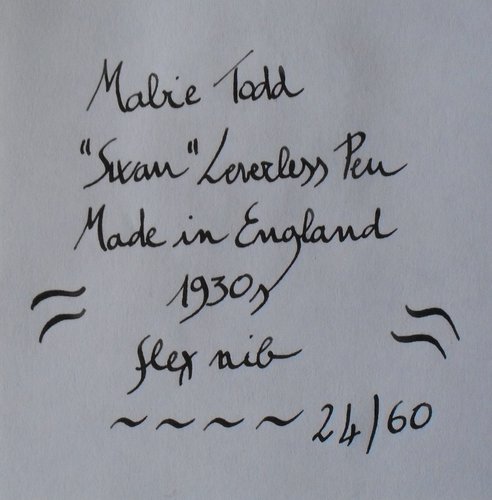 Mabie Todd
"Swan" Leverless Pen
Made in England
1930s
flex nib
~ ~ ~ ~ 24/60